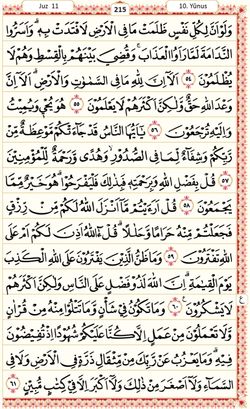 Juz 11
215
10. Yûnus
وَلَوْ اَنَّ لِكُلِّ نَفْسٍ ظَلَمَتْ مَا فِي الْاَرْضِ لَافْتَدَتْ بِهٖ وَاَسَرُّوا
النَّدَامَةَ لَمَّا رَاَوُا الْعَذَابَ وَقُضِيَ بَيْنَهُمْ بِالْقِسْطِ وَهُمْ لَا
يُظْلَمُونَ ٥٤ اَلَٓا اِنَّ لِلّٰهِ مَا فِي السَّمٰوَاتِ وَالْاَرْضِ اَلَٓا اِنَّ
وَعْدَ اللّٰهِ حَقٌّ وَلٰكِنَّ اَكْثَرَهُمْ لَا يَعْلَمُونَ ٥٥ هُوَ يُحْيٖ وَيُمٖيتُ
وَاِلَيْهِ تُرْجَعُونَ ٥٦ يَٓا اَيُّهَا النَّاسُ قَدْ جَٓاءَتْكُمْ مَوْعِظَةٌ مِنْ
رَبِّكُمْ وَشِفَٓاءٌ لِمَا فِي الصُّدُورِ وَهُدًى وَرَحْمَةٌ لِلْمُؤْمِنٖينَ
٥٧ قُلْ بِفَضْلِ اللّٰهِ وَبِرَحْمَتِهٖ فَبِذٰلِكَ فَلْيَفْرَحُوا هُوَ خَيْرٌ مِمَّا
يَجْمَعُونَ ٥٨ قُلْ اَرَاَيْتُمْ مَٓا اَنْزَلَ اللّٰهُ لَكُمْ مِنْ رِزْقٍ
فَجَعَلْتُمْ مِنْهُ حَرَامًا وَحَلَالًا قُلْ آٰللّٰهُ اَذِنَ لَكُمْ اَمْ عَلَى اللّٰهِ
تَفْتَرُونَ ٥٩ وَمَا ظَنُّ الَّذٖينَ يَفْتَرُونَ عَلَى اللّٰهِ الْكَذِبَ
يَوْمَ الْقِيٰمَةِ اِنَّ اللّٰهَ لَذُو فَضْلٍ عَلَى النَّاسِ وَلٰكِنَّ اَكْثَرَهُمْ
لَا يَشْكُرُونَ ٦٠ وَمَا تَكُونُ فٖي شَاْنٍ وَمَا تَتْلُوا مِنْهُ مِنْ قُرْاٰنٍ
وَلَا تَعْمَلُونَ مِنْ عَمَلٍ اِلَّا كُنَّا عَلَيْكُمْ شُهُودًا اِذْ تُفٖيضُونَ
فٖيهِ وَمَا يَعْزُبُ عَنْ رَبِّكَ مِنْ مِثْقَالِ ذَرَّةٍ فِي الْاَرْضِ وَلَا فِي
السَّمَٓاءِ وَلَٓا اَصْغَرَ مِنْ ذٰلِكَ وَلَٓا اَكْبَرَ اِلَّا فٖي كِتَابٍ مُبٖينٍ ٦١